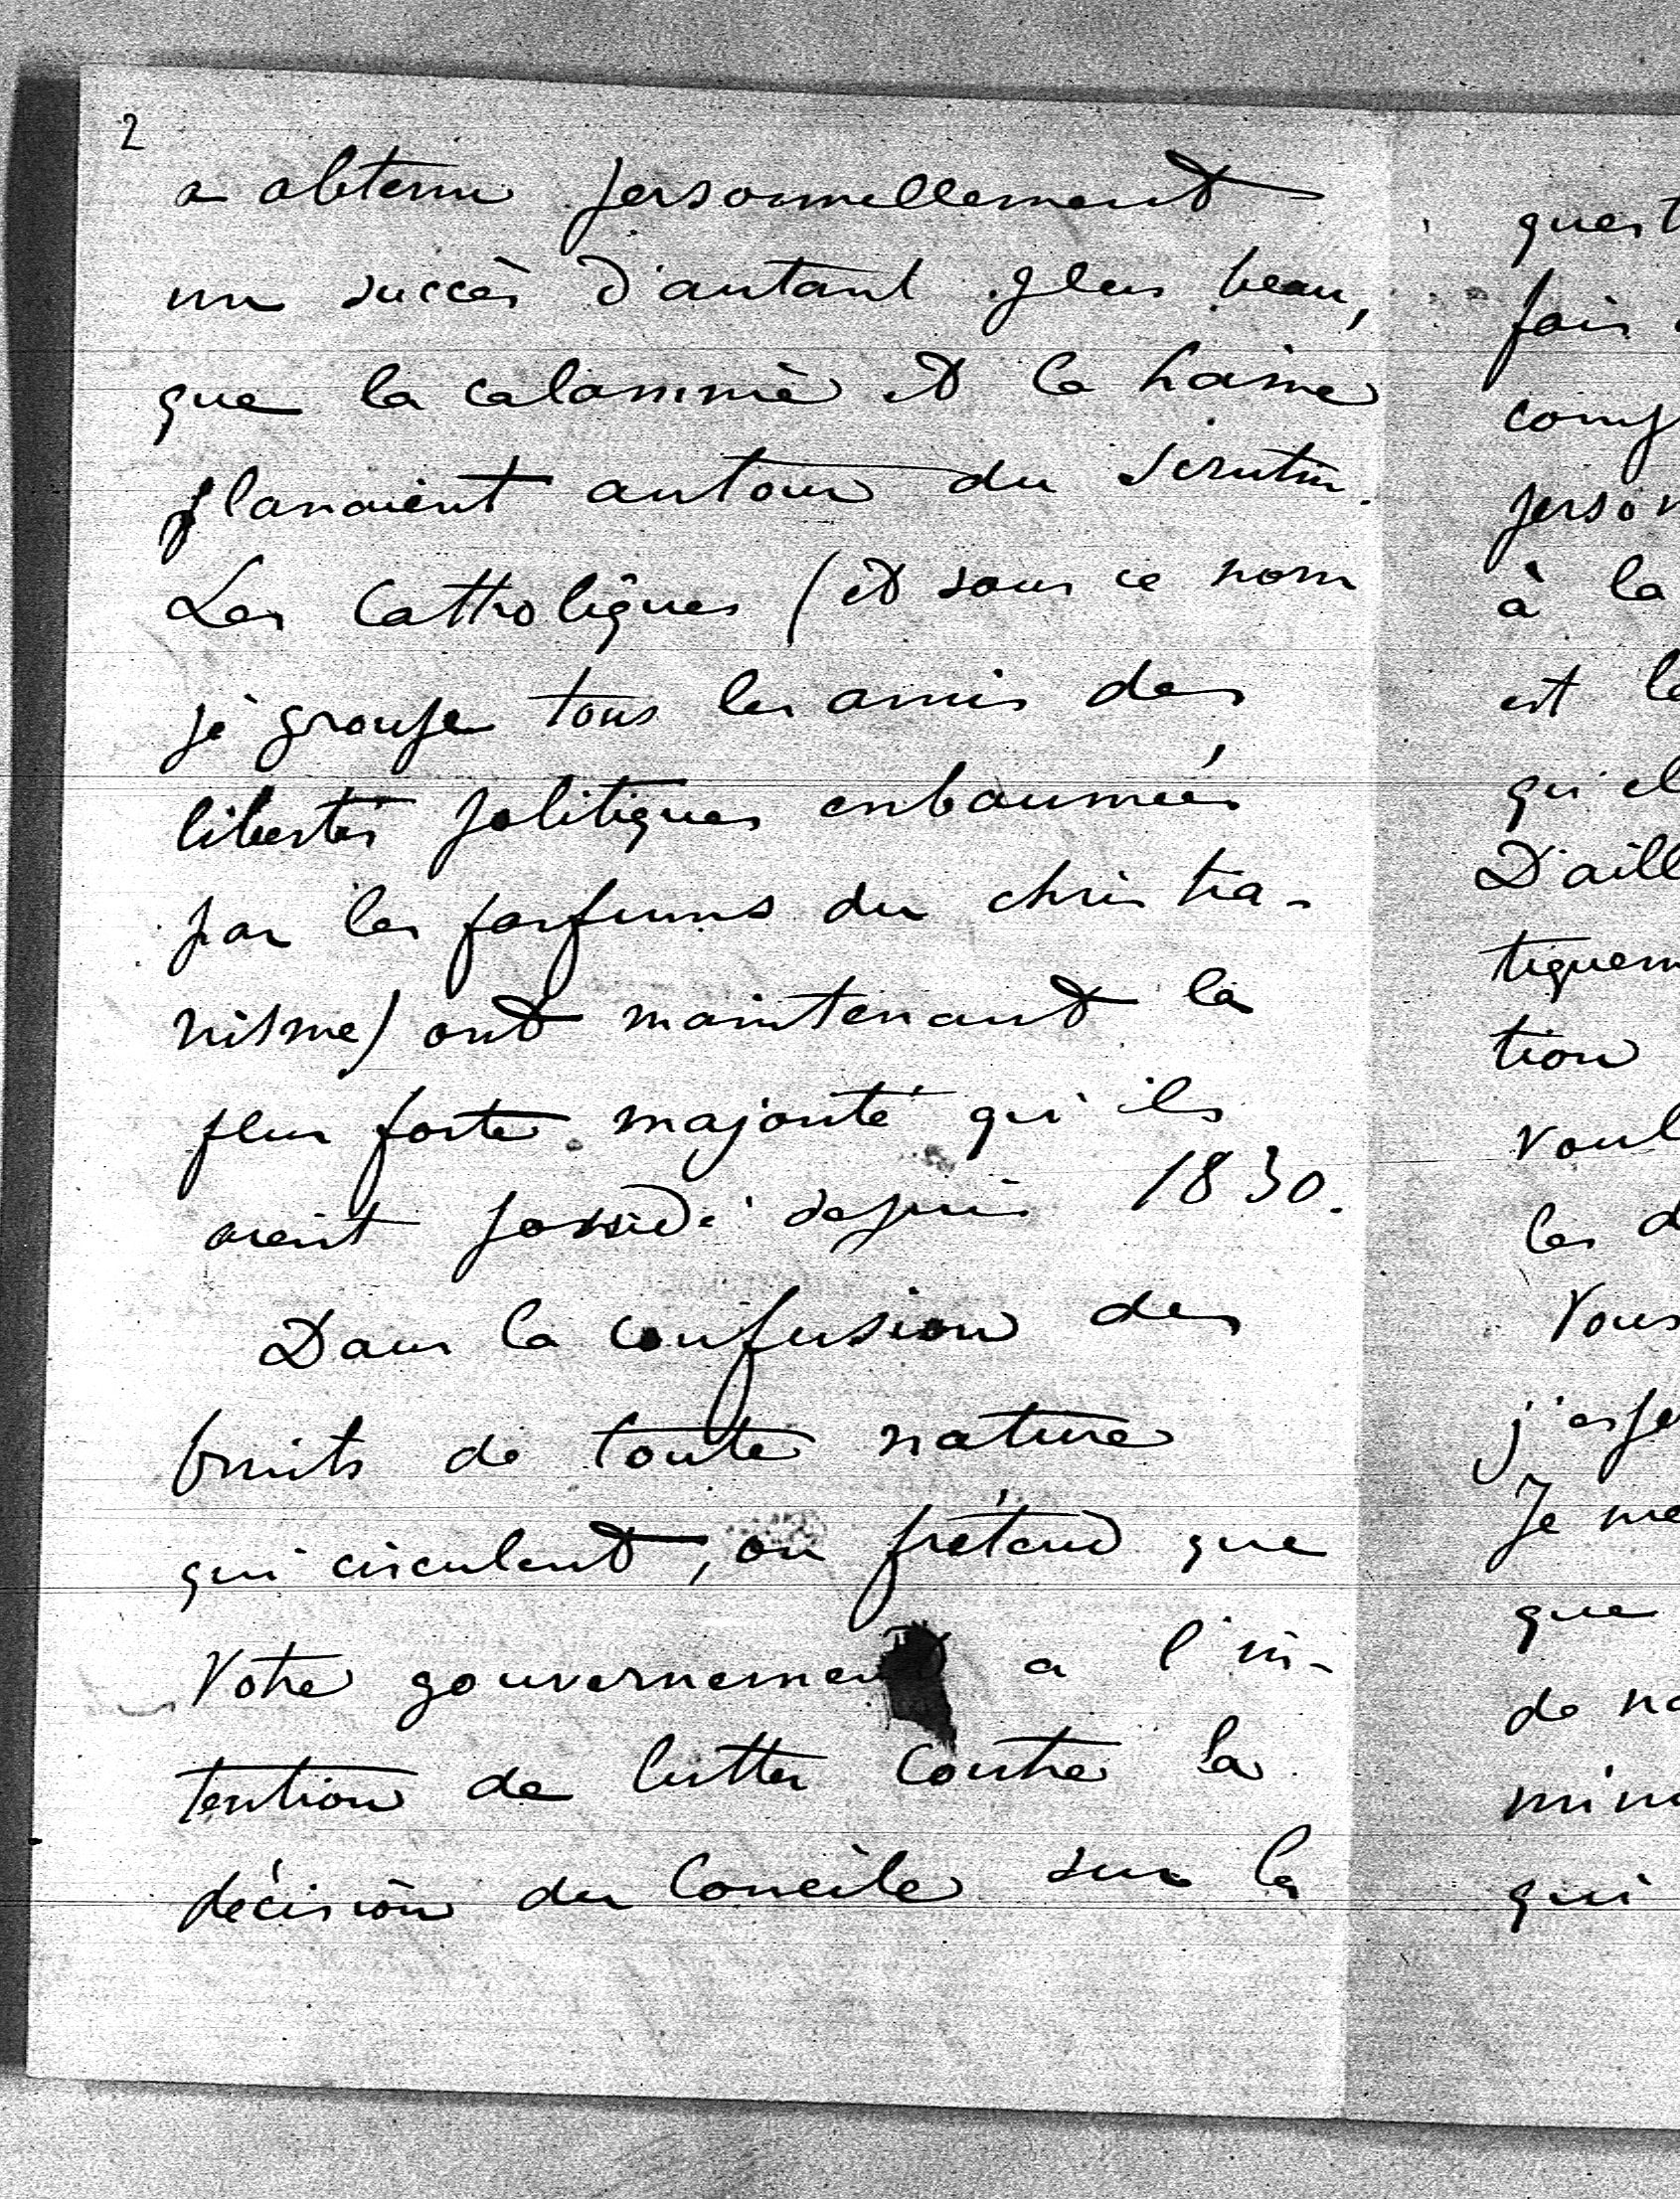 2
a obtenu personnellement
un succès d'autant plus beau,
que la calomnie et la haine
planaient autour du scrutin.
Les Catholiques (et sous ce nom
je groupe tous les amis des
libertés politiques enbaumées
par les parfums du christia-
nisme) ont maintenant la
plus forte majorité qu'ils
aient possédé depuis 1830.
Dans la confusion des
bruits de toute nature
qui circulent, on prétend que
Votre gouvernement a l'in-
tention de lutter contre la
décision du Concile sur la
quest
fois
comp
person
à la
est le
qu'el
D'aill
tiquem
tion
voul
les d
Vous
j'espe
Je me
que
de no
mini
qui